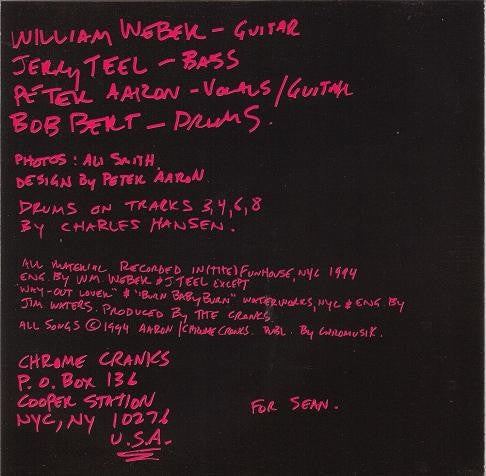 WILLIAM WEBER – GUITAR
JERRY TEEL – BASS
PETER AARON – VOCALS/GUITAR
BOB BERT – DRUMS.
PHOTOS: ALI SMITH.
DESIGN BY PETER AARON.
DRUMS ON TRACKS 3,4,6,8
BY CHARLES HANSEN.
ALL MATERIAL RECORDED IN (THE) FUNHOUSE, NYC 1994
ENG. BY WM. WEBER & J. TEEL EXCEPT
"WAY-OUT LOVER" & "BURN BABY BURN" WATERWORKS, NYC & ENG. BY
JIM WATERS. PRODUCED BY THE CRANKS.
ALL SONGS © 1994 AARON/CHROME CRANKS. PUBL. BY
CHROME CRANKS
P.O. BOX 136
COOPER STATION
NYC, NY 10276
U.S.A.
FOR SEAN.